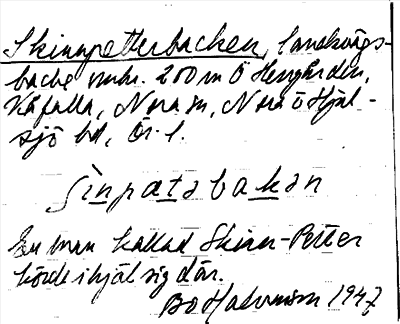 Skinnpetterbacken, landsvägs-
backe omkr. 200 m Ö Herrgården,
Käfalla, Nora sn, Nora ö Hjul-
sjö bd, Ör. l.
ʃìnpætəbakən
En man kallad Skinn-Petter
körde ihjäl sig där.
Bo 1947